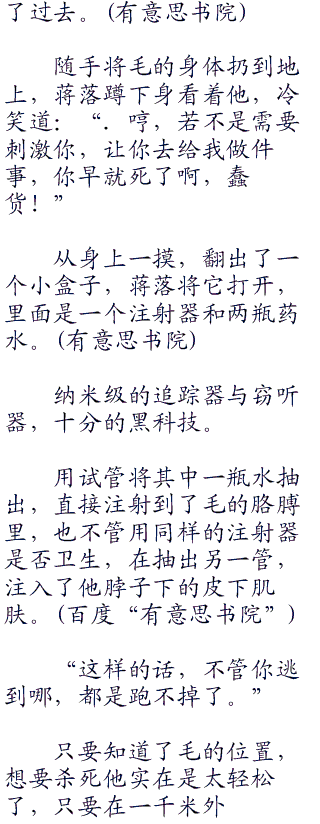 了过去。(有意思书院)
随手将毛的身体扔到地
上，蒋落蹲下身看着他，冷
笑道：“．哼，若不是需要
刺激你，让你去给我做件
事，你早就死了啊，蠢
货！”
从身上一摸，翻出了一
个小盒子，蒋落将它打开，
里面是一个注射器和两瓶药
水。(有意思书院)
纳米级的追踪器与窃听
器，十分的黑科技。
用试管将其中一瓶水抽
出，直接注射到了毛的胳膊
里，也不管用同样的注射器
是否卫生，在抽出另一管，
注入了他脖子下的皮下肌
肤。(百度“有意思书院”)
“这样的话，不管你逃
到哪，都是跑不掉了。”
只要知道了毛的位置，
想要杀死他实在是太轻松
了，只要在一千米外